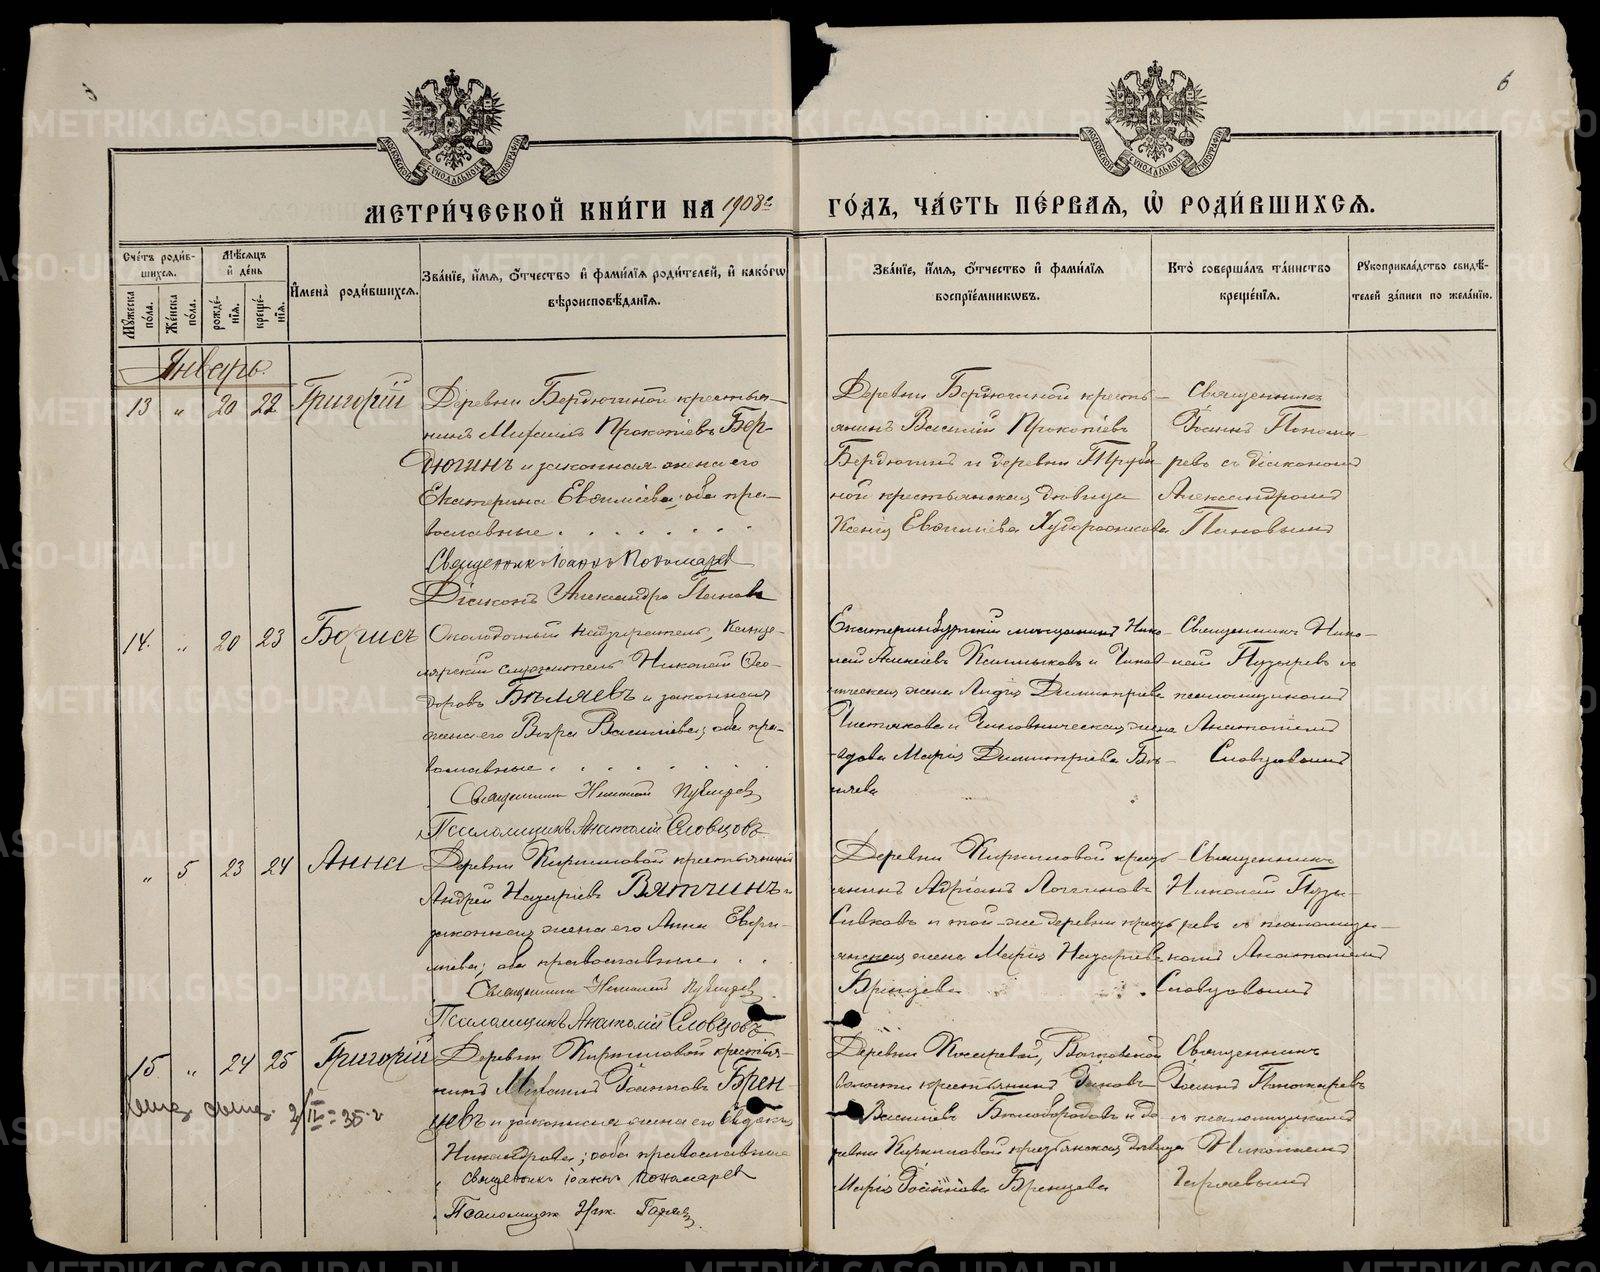 5
6
МОСКОВСКОЙ СѴНОДАЛЬНОЙ ТИПОГРАФІИ
МОСКОВСКОЙ СѴНОДАЛЬНОЙ ТИПОГРАФІИ
МЕТРИ́ЧЕСКОЙ КНИ́ГИ НА 1908 г
ГО́ДЪ, ЧА́СТЬ ПЕ́РВАѦ, Ѡ҆ РОДИ́ВШИХСѦ.
Сче́тъ роди́в-
шихсѧ.
Му́жеска по́ла.
Же́нска по́ла.
Мѣ́сѧцъ и҆ де́нь
рожде́нїѧ.
креще́нїѧ.
И҆мена̀ роди́вшихсѧ.
Зва́нїе, и҆́мѧ, о҆́тчество и҆ фами́лїѧ роди́телей, и҆ како́гѡ
вѣроисповѣ́данїѧ.
Зва́нїе, и҆́мѧ, о҆́тчество и҆ фами́лїѧ
воспрїе́мникѡвъ.
Кто̀ соверша́лъ та́инство
креще́нїѧ.
Рꙋкоприкла́дство свидѣ́-
телей за́писи по жела́нїю.
Январь.
13 „ 20 22 Григорій
Деревни Бердюгиной крестья-
нинъ Михаилъ Прокопіевъ Бер-
дюгинъ и законная жена его
Екатерина Евѳиміева, оба пра-
вославные . . . . . .
Священникъ Іоаннъ Пономаревъ
Діаконъ Александръ Пановъ
Деревни Бердюгиной кресть-
янинъ Василій Прокопіевъ
Бердюгинъ и деревни
ной крестьянская дѣвица
Ксенія Евѳиміева
Священникъ
Іоаннъ Понома-
ревъ съ діакономъ
Александромъ
Пановымъ
14. „ 20 23 Борисъ
Околодочный надзиратель, канце-
лярскій служитель Николай Ѳео-
доровъ Бѣляевъ и законная
жена его Вѣра Васильева; оба пра-
вославные . . . . . .
Священникъ Николай Пузыревъ
Псаломщикъ Анатолій Словцовъ
Екатеринбургскій мѣщанинъ Нико-
лай Алексіевъ и Чинов-
ническая жена Лидія Димитріева
Чистякова и Чиновническая жена
вдова Марія Димитріева Бѣ-
ляева
Священникъ Нико-
лай Пузыревъ съ
псаломщикомъ
Анатоліемъ
Словцовымъ
„ 5 23 24 Анна
Деревни Кирпиловой крестьянинъ
Андрей Назаріевъ Вятчинъ и
законная жена его Анна Евфи-
міева; оба православные . .
Священникъ Николай Пузыревъ
Псаломщикъ Анатолій Словцовъ
Деревни Кирпиловой кресть-
янинъ Адріанъ Логгиновъ
Сивковъ и той-же деревни кресть-
янская жена Марія Назаріева
Бренцева
Священникъ
Николай Пузы-
ревъ съ псаломщи-
комъ Анатоліемъ
Словцовымъ
15 „ 24 25 Григорій
Деревни Кирпиловой крестья-
нинъ Михаилъ Іоанновъ Брен-
цевъ и законная жена его Евдокія
Никандрова; оба православные
Священникъ Іоаннъ Пономаревъ
Псаломщикъ Ник. Гаряев
2/II = 35 г
Деревни Косаревой,
волости крестьянинъ Іаковъ
Васильевъ Бѣлобородовъ и де-
ревни Кирпиловой крестьянская дѣвица
Марія Іоаннова Бренцева
Священникъ
Іоаннъ Пономаревъ
съ псаломщикомъ
Николаемъ
Гаряевымъ
METRIKI.GASO-URAL.RU